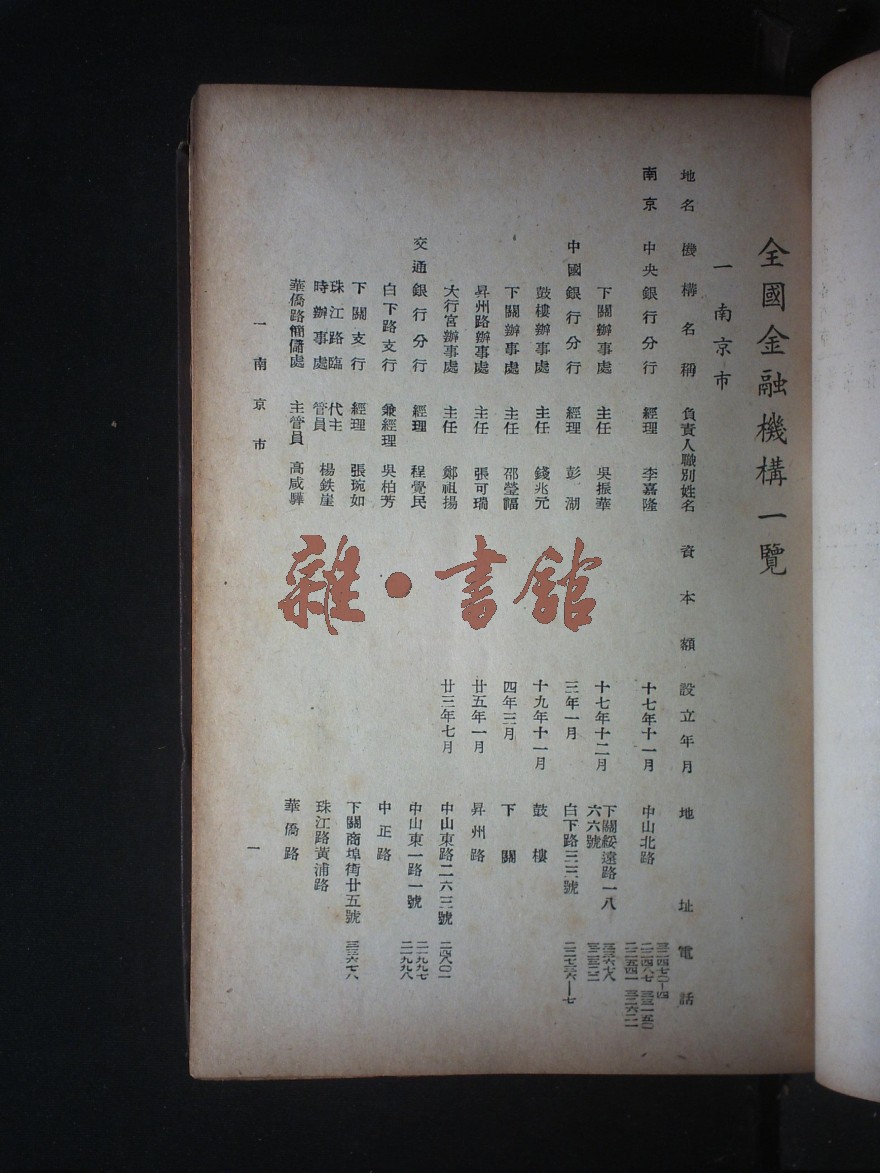 全國金融機構一覽
一 南京市
地名 機構名稱 負責人職別姓名 資本額 設立年月 地址 電話
南京 中央銀行分行 經理 李嘉隆 十七年十一月 中山北路
下關辦事處 主任 吳振華 十七年十二月 下關綏遠路一八六六號
中國銀行分行 經理 彭湖 三年一月 白下路三三號 二二七三六—七
鼓樓辦事處 主任 錢兆元 十九年十一月 鼓樓
下關辦事處 主任 邵瑩福 四年三月 下關
昇州路辦事處 主任 張可瑞 廿五年一月 昇州路
大行宮辦事處 主任 鄭祖揚 廿三年七月 中山東路二六三號 二四八〇一
交通銀行分行 經理 程覺民 中山東一路一號 二一九九七 二一九九八
白下路支行 兼經理 吳柏芳 中正路
下關支行 經理 張琬如 下關商埠街廿五號 三三六七八
珠江路臨時辦事處 代主管員 楊鉄崖 珠江路黃浦路
華僑路簡儲處 主管員 高咸驊 華僑路
一 南京市 一
雜·書館